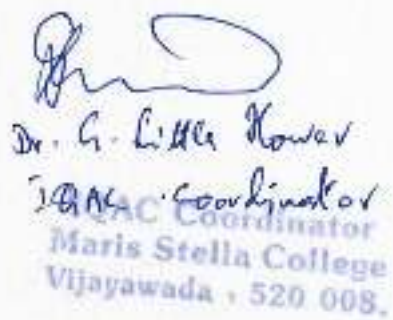 Dr. G. Little Flower
IQAC Coordinator
IQAC Coordinator
Maris Stella College
Vijayawada - 520 008.